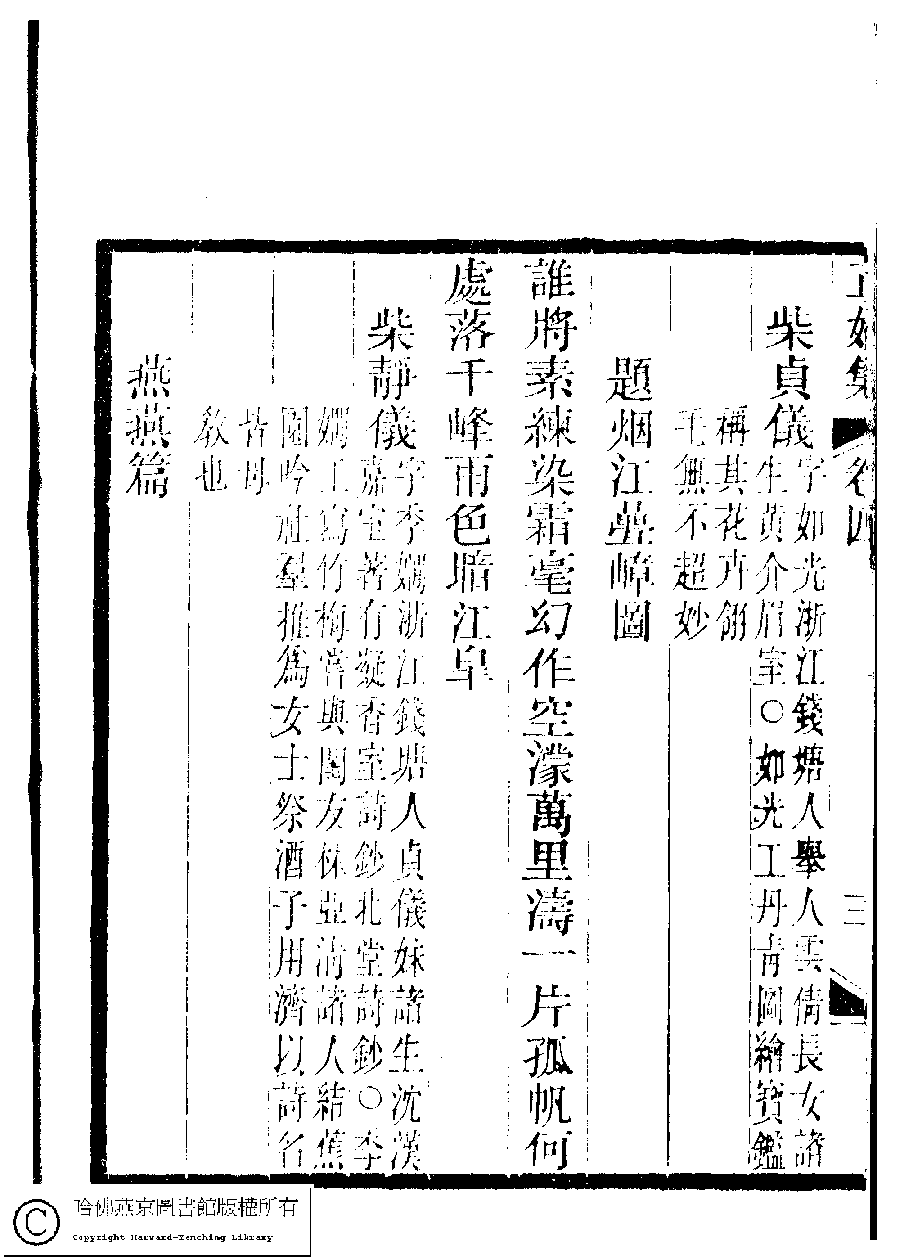 正始集 卷四 二
柴貞儀字如光浙江錢塘人舉人雲倩長女諸
生黃介眉室○如光工丹靑圖繪寶鑑
稱其花卉翎
毛無不超妙
題烟江疊嶂圖
誰將素練染霜毫幻作空濛萬里濤一片孤帆何
處落千峰雨色暗江臯
柴靜儀字季嫻浙江錢塘人貞儀妹諸生沈漢
嘉室著有凝香室詩鈔北堂詩鈔○季
嫻工寫竹梅嘗與閨友林亞淸諸人結蕉
園吟社羣推爲女士祭酒子用濟以詩名
皆母
敎也
燕燕篇
哈佛燕京圖書館版權所有
Copyright Harvard-Yenching Library